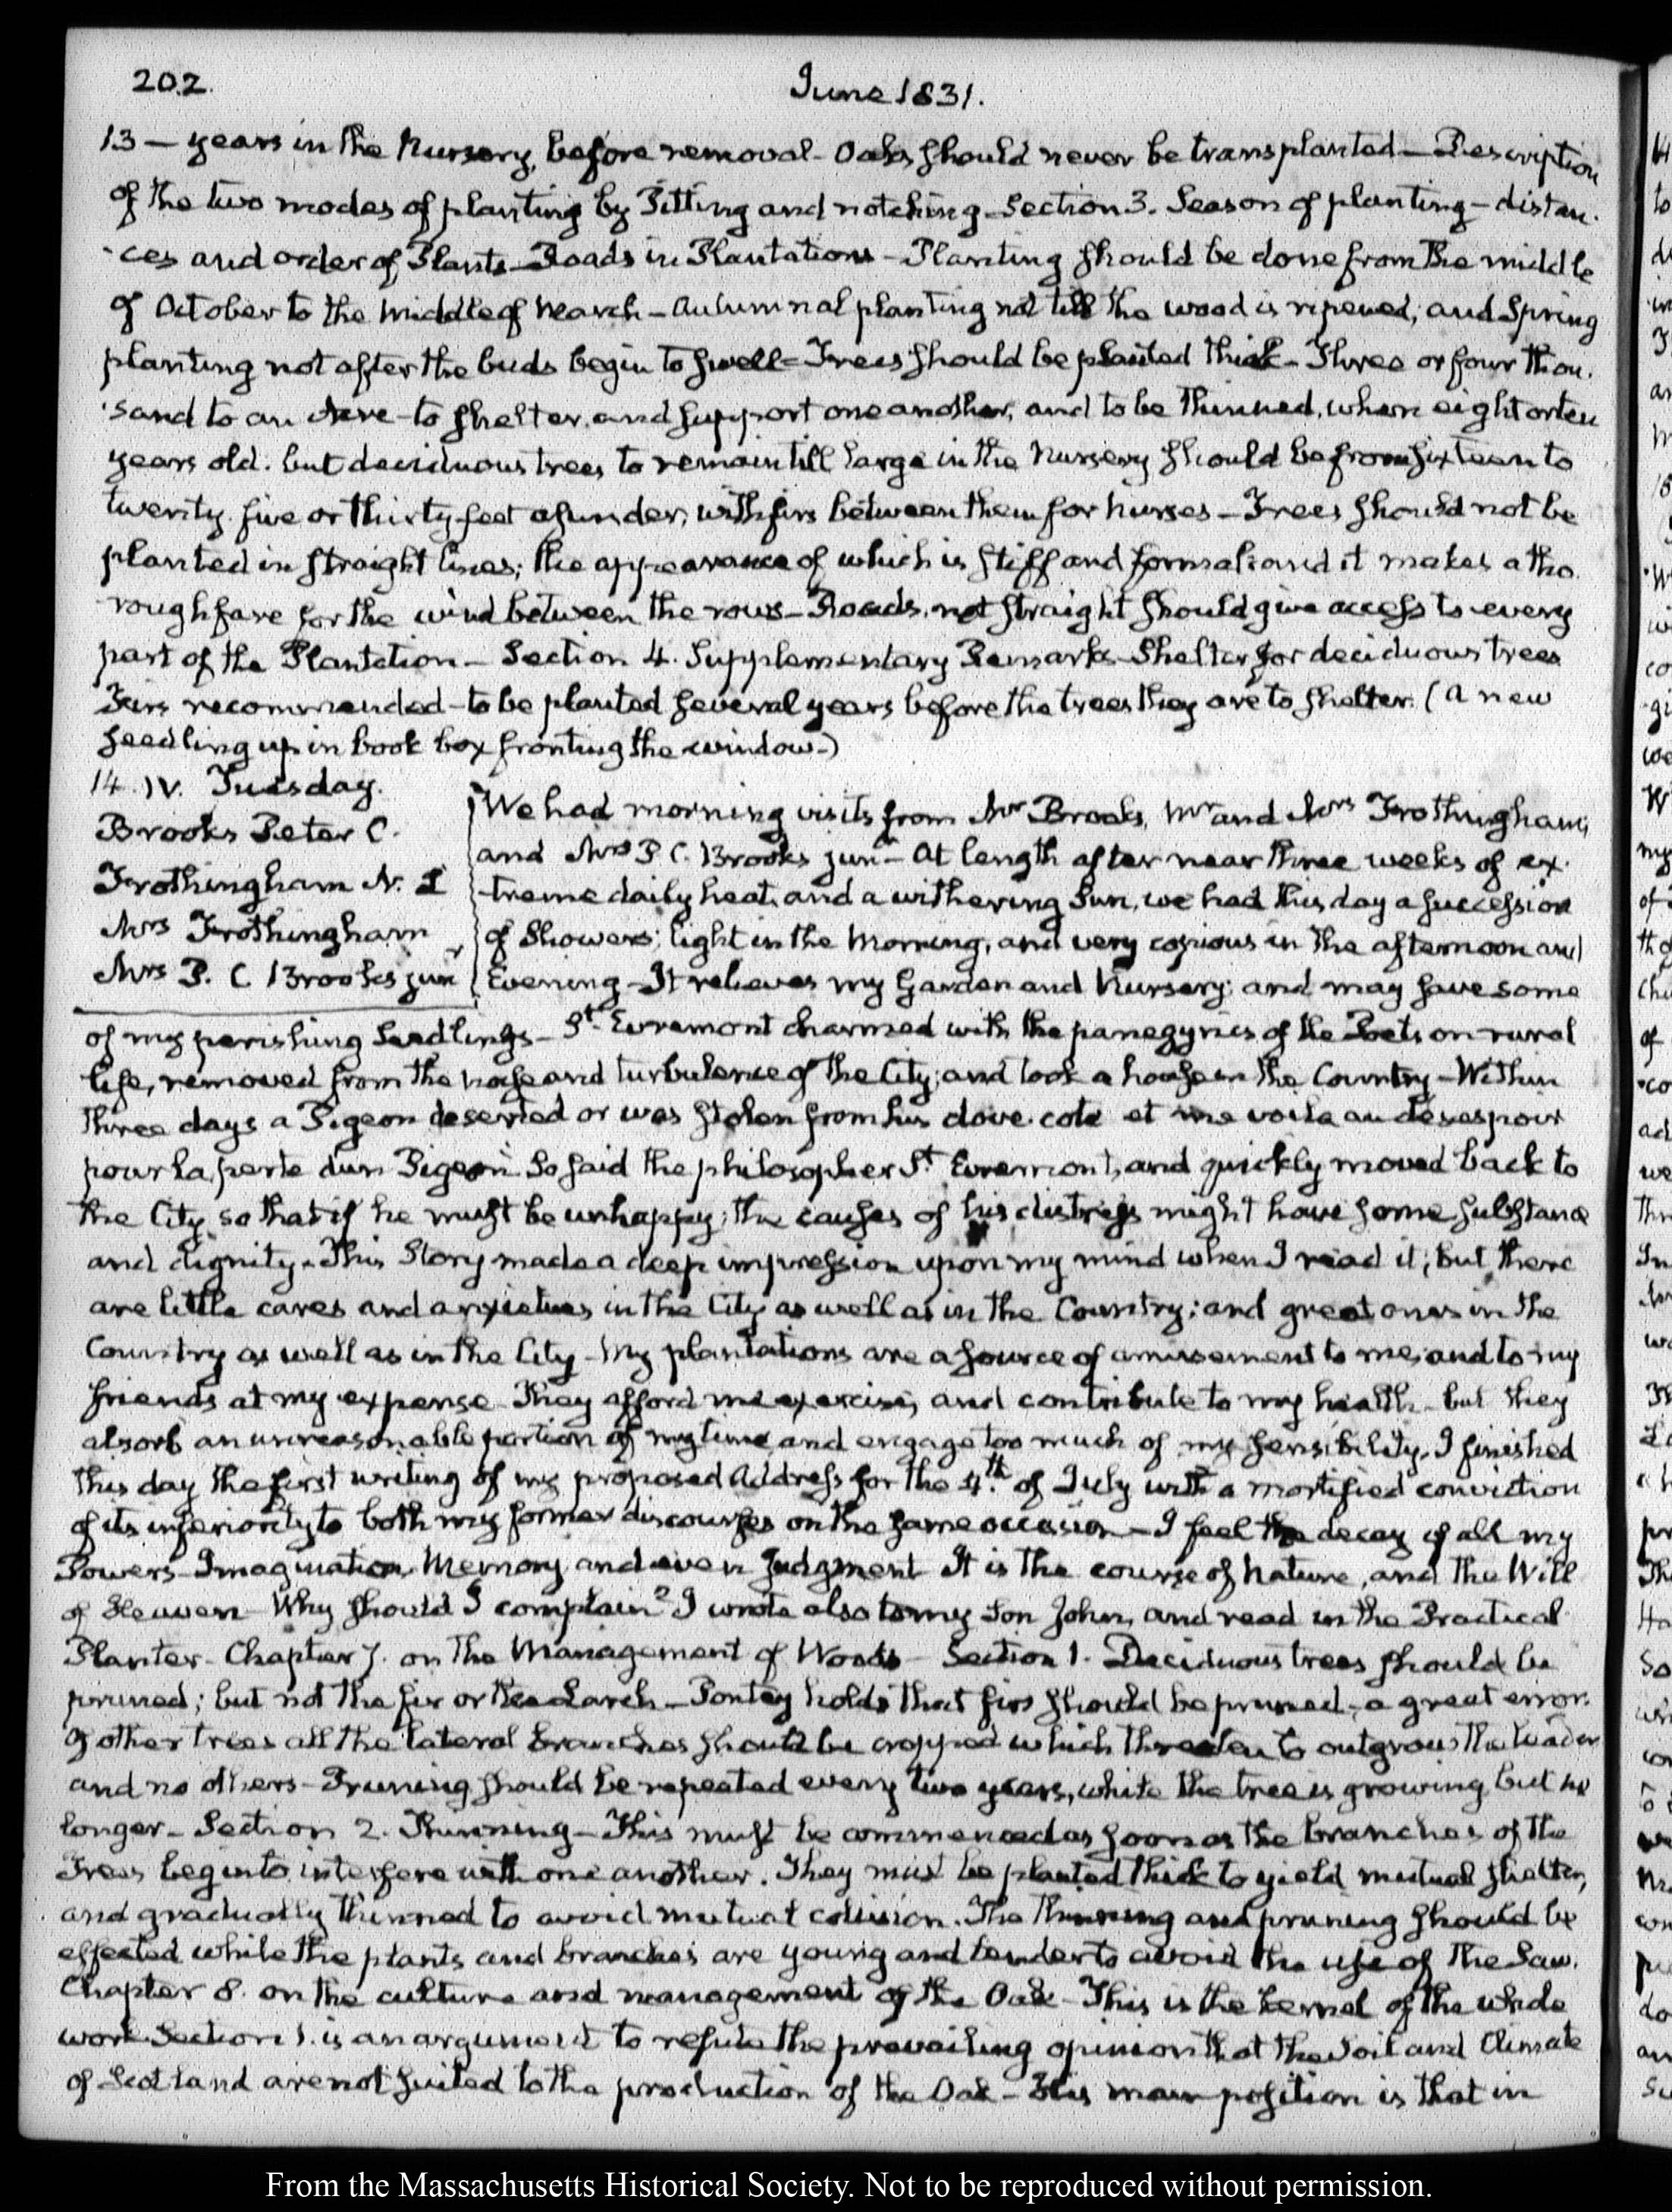 202.
June 1831.
13 — years in the Nursery, before removal - Oaks should never be transplanted — Description
of the two modes of planting by Pitting and notching - Section 3. Season of planting - distan-
-ces and order of Plants - Roads in Plantations - Planting should be done from the middle
of October to the middle of March - Autumnal planting not till the wood is ripened, and Spring
planting not after the buds begin to swell - Trees should be planted thick - Three or four thou-
-sand to an Acre - to shelter and support one another, and to be thinned, when eight or ten
years old. but deciduous trees to remain till large in the Nursery should be from sixteen to
twenty five or thirty feet asunder, with firs between them for nurses - Trees should not be
planted in straight lines; the appearance of which is stiff and formal: and it makes a tho-
roughfare for the wind between the rows - Roads, not straight should give access to every
part of the Plantation - Section 4. Supplementary Remarks - Shelter for deciduous trees
Firs recommended - to be planted several years before the trees they are to shelter. (a new
seedling up in book box fronting the window -)
14. IV. Tuesday.
Brooks Peter C.
Frothingham N. L
Mrs Frothingham
Mrs P. C Brooks jun
We had morning visits from Mr Brooks, Mr and Mrs Frothingham,
and Mrs P. C. Brooks jun - At length after near three weeks of ex-
treme daily heat, and a withering Sun, we had this day a succession
of Showers; light in the Morning, and very copious in the afternoon and
Evening - It relieves my Garden and Nursery; and may save some
of my perishing Seedlings - St. Evremont charmed with the panegyrics of the Poets on rural
life, removed from the noise and turbulence of the City; and took a house in the Country - Within
three days a Pigeon deserted or was stolen from his dove-cote et me voila au desespoir
pour la perte dun Pigeon. So said the philosopher St Evremont, and quickly moved back to
the City, so that if he must be unhappy; the causes of his distress might have some substance
and dignity. This Story made a deep impression upon my mind when I read it; but there
are little cares and anxieties in the City as well as in the Country; and great ones in the
Country as well as in the City - My plantations are a source of amusement to me, and to my
friends at my expense They afford me exercise, and contribute to my health - but they
absorb an unreasonable portion of my time and engage too much of my sensibility. I finished
this day the first writing of my proposed Address for the 4th. of July with a mortified conviction
of its inferiority to both my former discourses on the same occasion - I feel the decay of all my
Powers - Imagination Memory, and even Judgment It is the course of Nature, and the Will
of Heaven Why should I complain? I wrote also to my Son John, and read in the Practical
Planter - Chapter 7. on the Management of Woods - Section 1. Deciduous trees should be
pruned; but not the fir or the Larch - Pontey holds that firs should be pruned, a great error.
Of other trees all the lateral branches should be cropped which threaten to outgrow the leader
and no others - Pruning should be repeated every two years, while the tree is growing but no
longer - Section 2. Thinning - This must be commenced as soon as the branches of the
Trees begin to interfere with one another. They must be planted thick to yield mutual shelter,
and gradually thinned to avoid mutual collision. The thinning and pruning should be
effected while the plants and branches are young and tender to avoid the use of the Saw.
Chapter 8. on the culture and management of the Oak - This is the kernel of the whole
work Section 1. is an argument to refute the prevailing opinion that the Soil and Climate
of Scotland are not suited to the production of the Oak - His main position is that in
From the Massachusetts Historical Society. Not to be reproduced without permission.